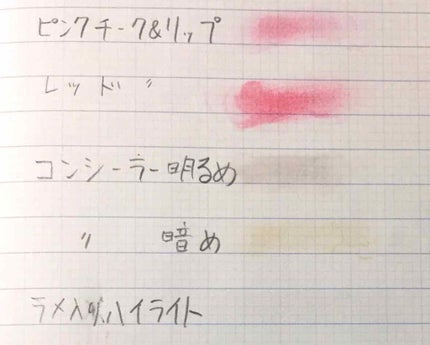 ピンクチーク&リップ
レッド 〃
コンシーラー明るめ
〃 暗め
ラメ入りハイライト